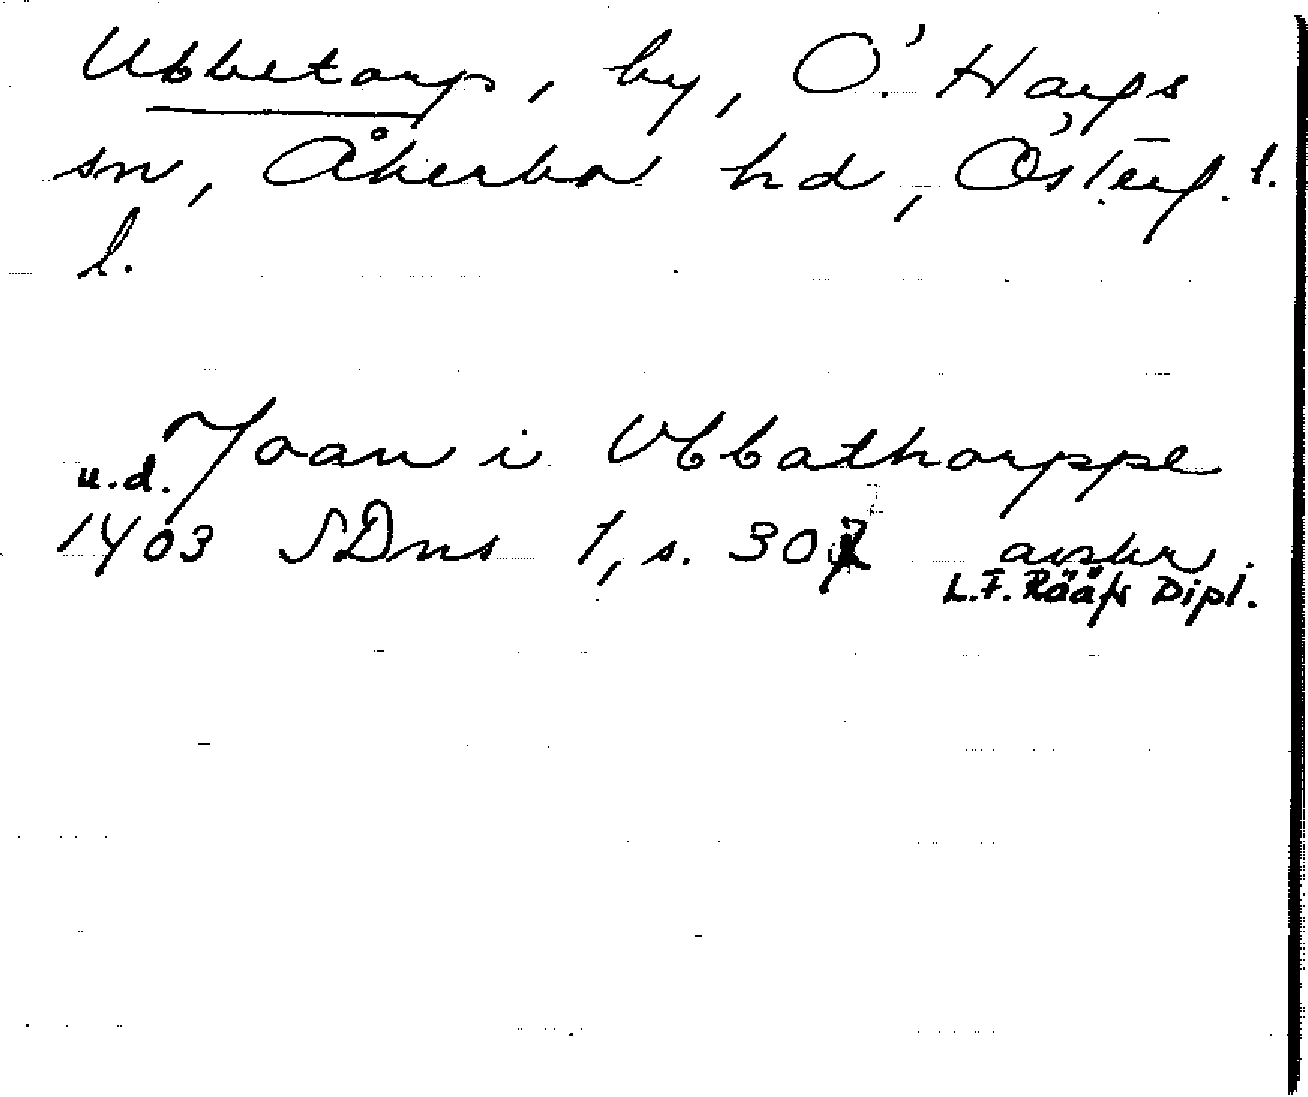 Ubbetorp, by, Ö. Hargs
sn, Åkerbo hd, Österg. l.
l.
Joan i Vbbathorppe
u.d.
1403 SDns 1, s. 307 avskr.
L.F. Rääfs Dipl.